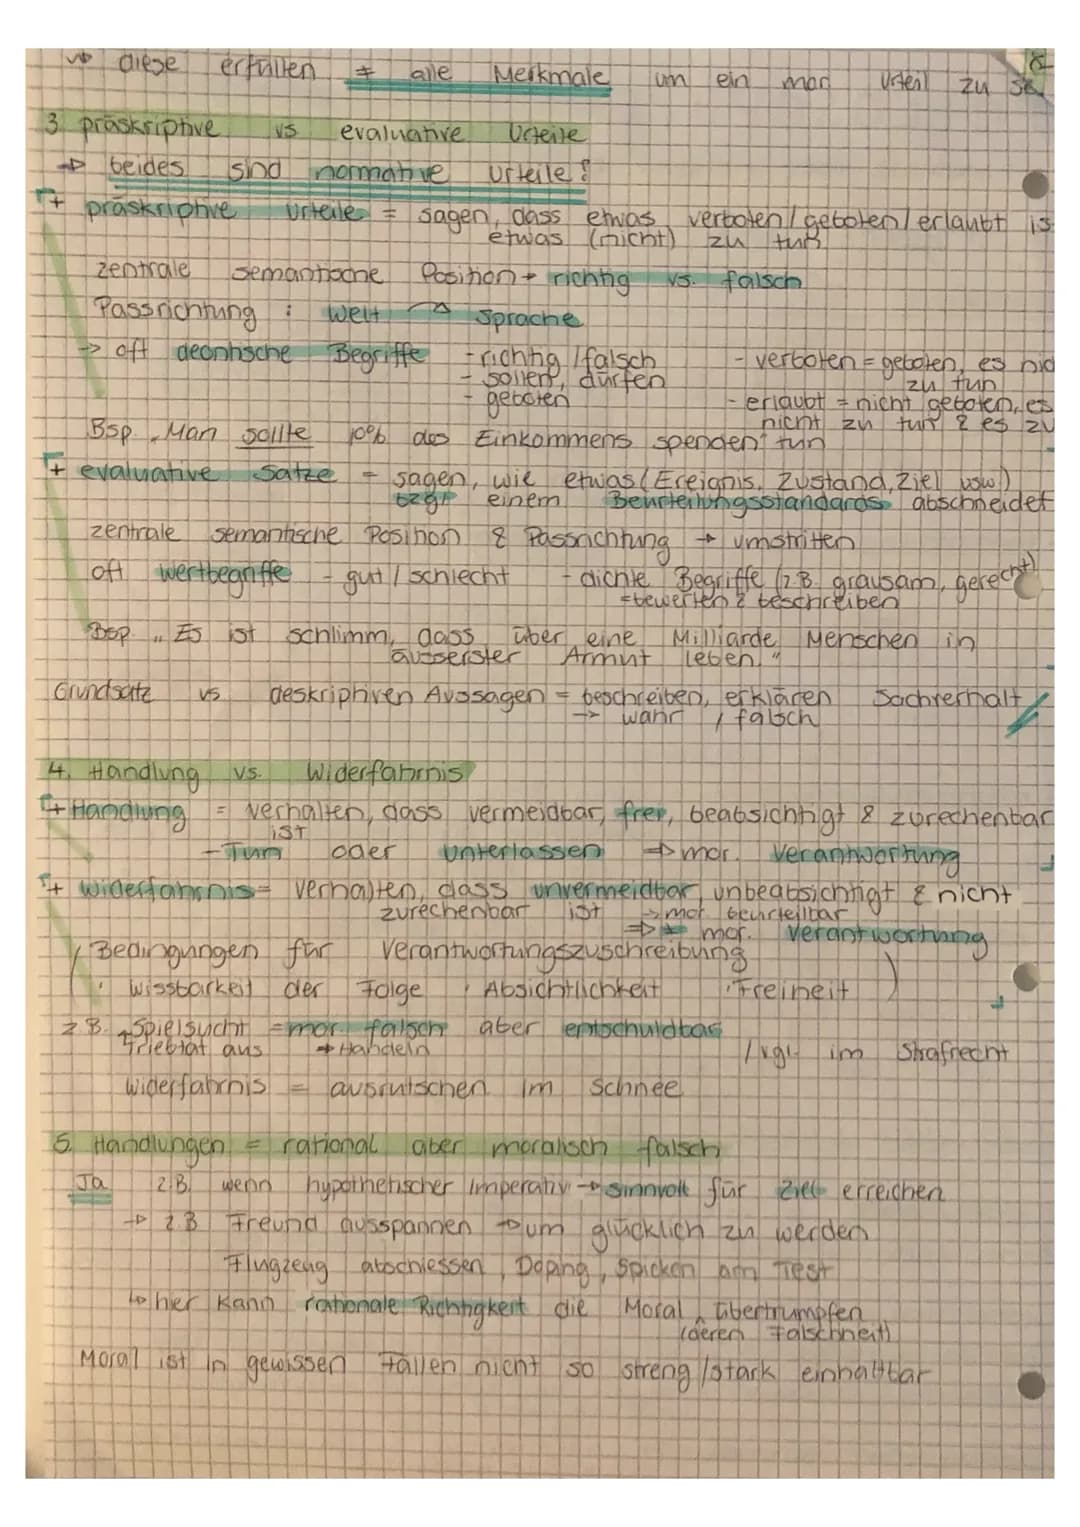 ↝ diese erfüllen ≠ alle Merkmale um ein mor. Urteil zu se
3 präskriptive vs evaluative Urteile
→ beides sind normative Urteile!
+ präskriptive Urteile = sagen, dass etwas verboten/geboten/erlaubt is
etwas (nicht) zu tun.
zentrale semantische Position → richtig vs. falsch
Passrichtung : Welt → Sprache
→ oft deontische Begriffe - richtig/falsch - verboten = geboten, es nic
- sollen, dürfen zu tun
- geboten - erlaubt = nicht geboten, es
nicht zu tun & es zu
Bsp. „Man sollte 10% des Einkommens spenden" tun
+ evaluative Sätze = sagen, wie etwas (Ereignis, Zustand, Ziel usw.)
bzgl. einem Beurteilungsstandards abschneidet
zentrale semantische Position & Passrichtung → umstritten
oft Wertbegriffe - gut/schlecht - dichte Begriffe (z.B. grausam, gerecht)
= bewerten & beschreiben
Bsp. „Es ist schlimm, dass über eine Milliarde Menschen in
äusserster Armut leben."
Grundsatz vs deskriptiven Aussagen = beschreiben, erklären Sachverhalt
→ wahr / falsch
4. Handlung vs. Widerfahrnis
+ Handlung = Verhalten, dass vermeidbar, frei, beabsichtigt & zurechenbar
ist
- Tun oder Unterlassen ⇒ mor. Verantwortung
+ Widerfahrnis = Verhalten, dass unvermeidbar, unbeabsichtigt & nicht
zurechenbar ist → mor. beurteilbar
⇒ ≠ mor. Verantwortung
( Bedingungen für Verantwortungszuschreibung
· Wissbarkeit der Folge · Absichtlichkeit · Freiheit )
z.B. Spielsucht = mor. falsch aber entschuldbar
Triebtat aus → Handeln /vgl. im Strafrecht
Widerfahrnis = ausrutschen im Schnee
5. Handlungen = rational aber moralisch falsch
Ja z.B. wenn hypothetischer Imperativ → sinnvoll für Ziel erreichen
→ z.B. Freund ausspannen → um glücklich zu werden
Flugzeug abschiessen, Doping, Spicken am Test
↳ hier kann rationale Richtigkeit die Moral übertrumpfen
(deren Falschheit)
Moral ist in gewissen Fällen nicht so streng/stark einhaltbar